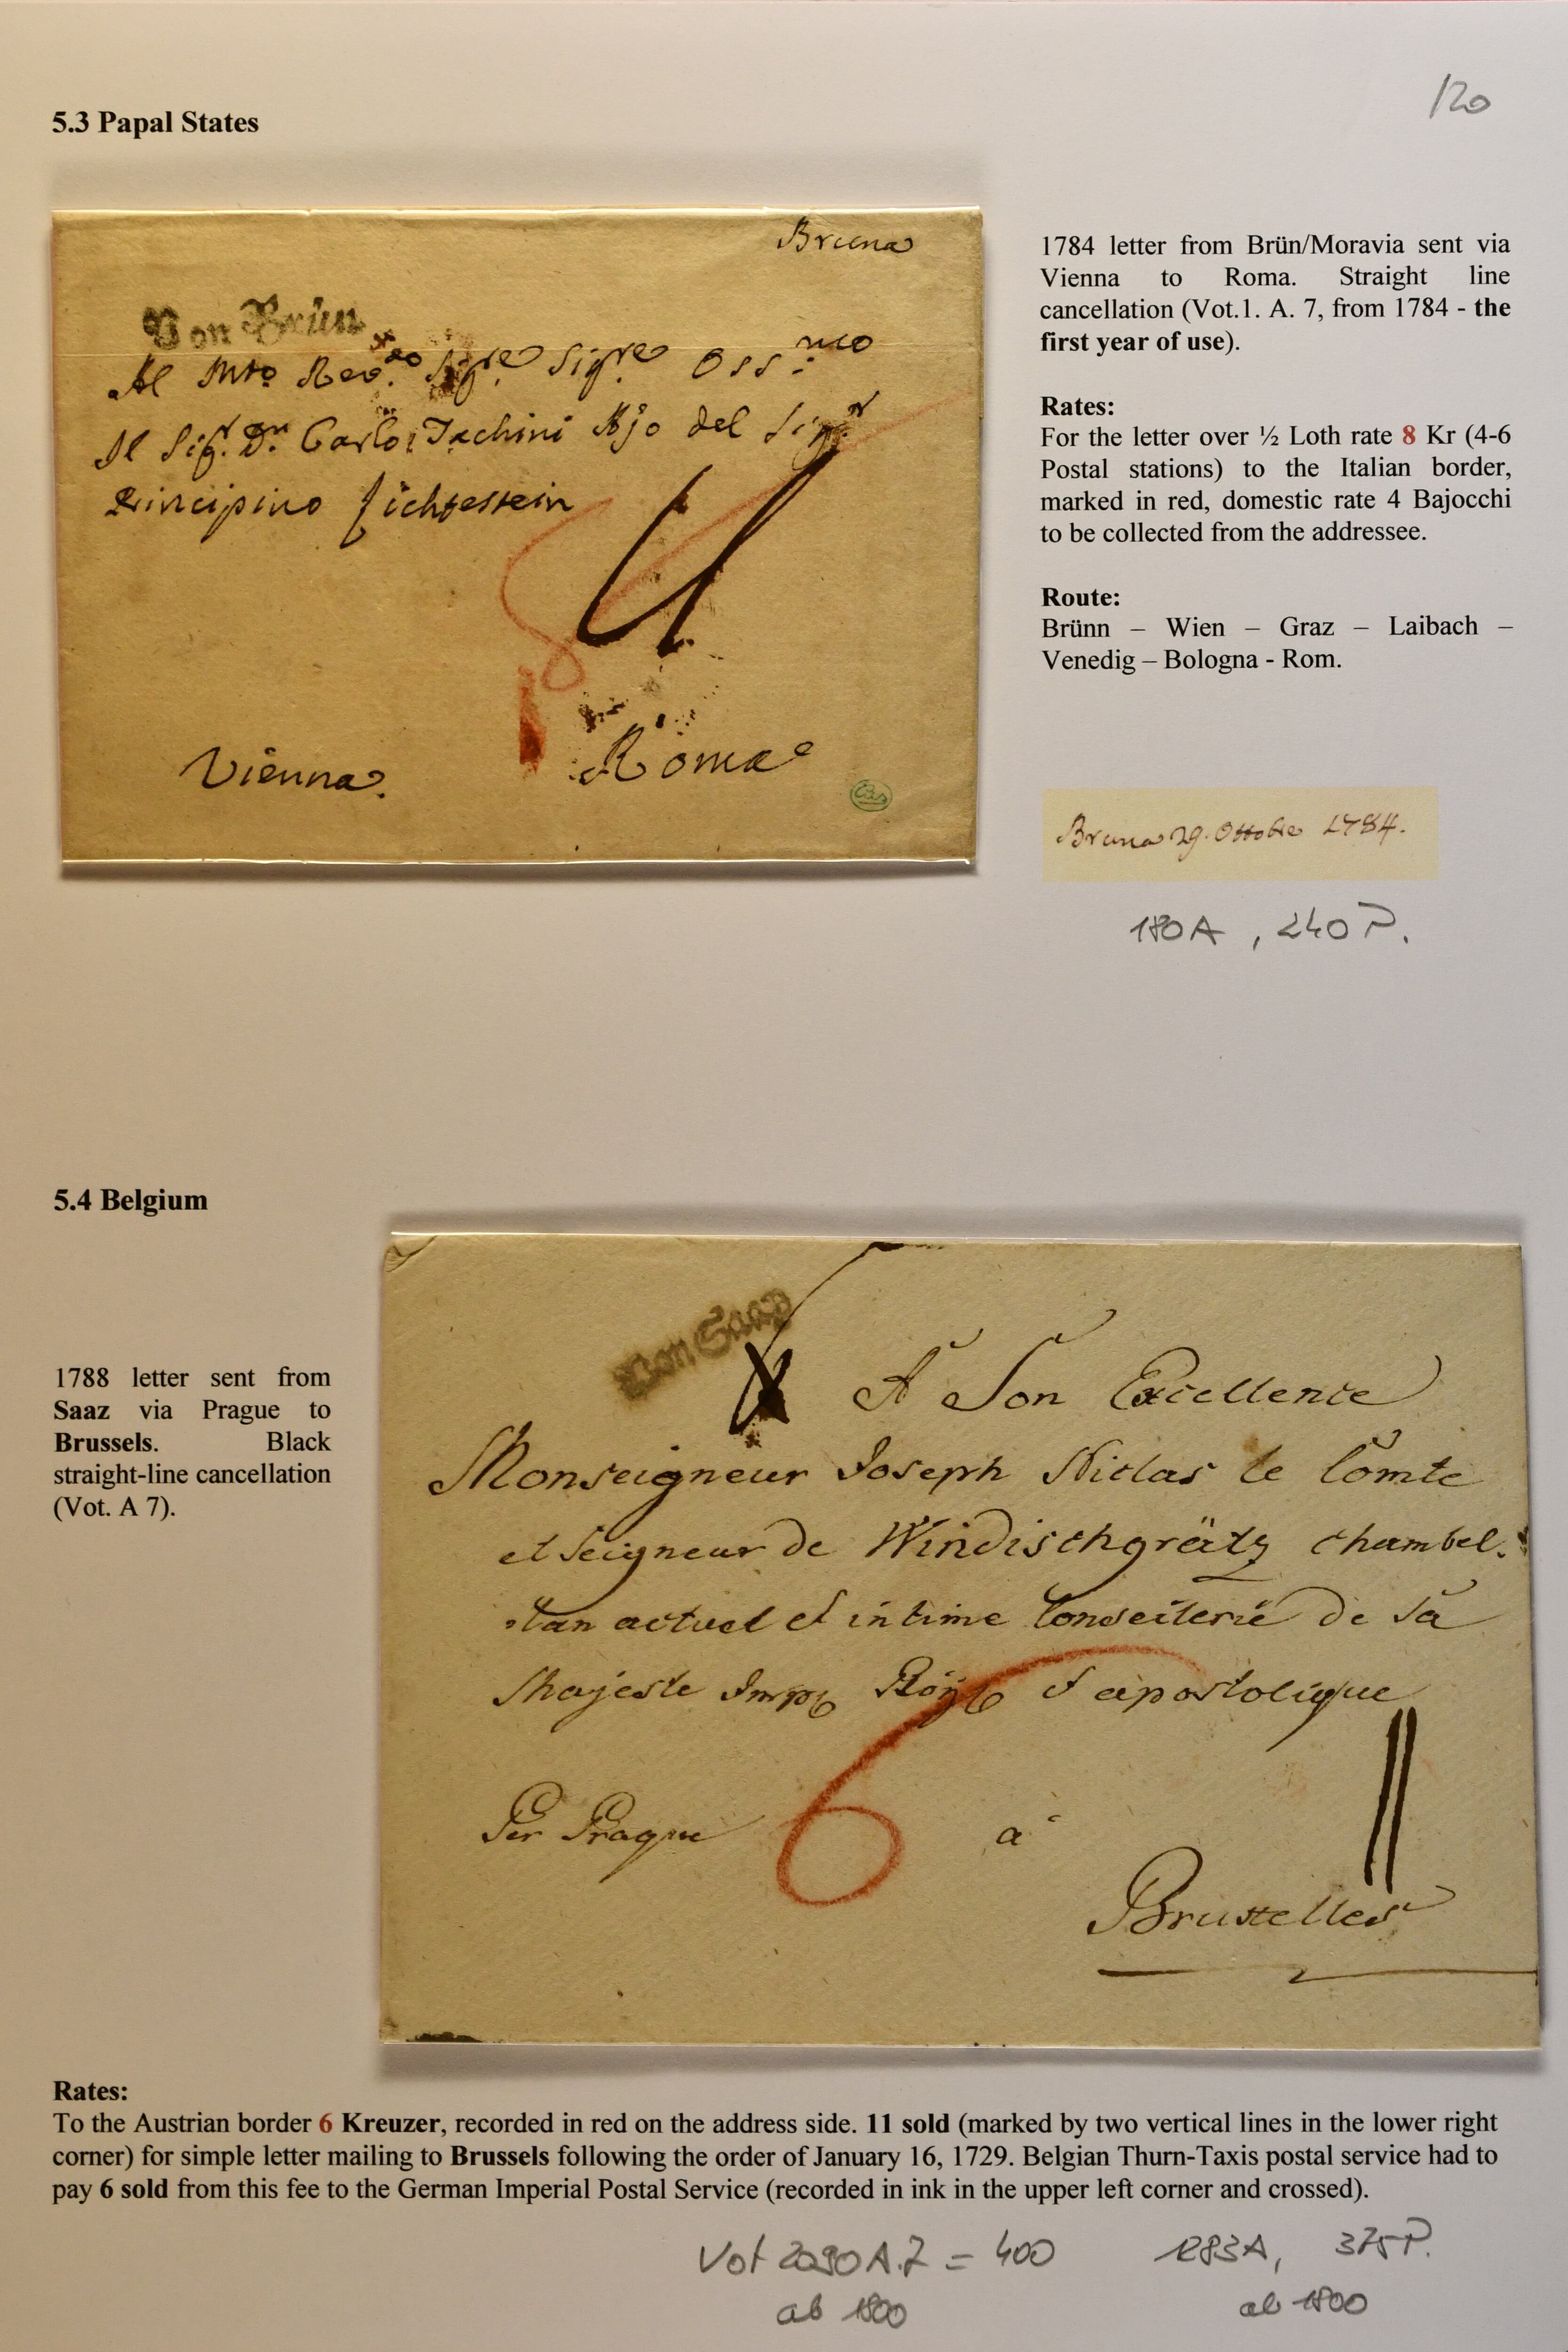 120
5.3 Papal States
Bruna
Von Brün
Al Mto Revdo Sigre Sigre Oss:mo
Il Sigr Dn Carlo Jachini Ajo del Sigr
Principino Lichtestein
4
8
Vienna.
Roma
1784 letter from Brün/Moravia sent via
Vienna to Roma. Straight line
cancellation (Vot.1. A. 7, from 1784 - the
first year of use).
Rates:
For the letter over ½ Loth rate 8 Kr (4-6
Postal stations) to the Italian border,
marked in red, domestic rate 4 Bajocchi
to be collected from the addressee.
Route:
Brünn – Wien – Graz – Laibach –
Venedig – Bologna - Rom.
Bruna 29. Ottobre 1784.
180A, 240 P.
5.4 Belgium
1788 letter sent from
Saaz via Prague to
Brussels. Black
straight-line cancellation
(Vot. A 7).
Von Saaz
A Son Excellence
Monseigneur Joseph Niclas le Comte
et Seigneur de Windischgrätz chambel.
lan actuel et intime de Sa
Majeste apostolique
Per Prague
6
a
11
Bruxelles
Rates:
To the Austrian border 6 Kreuzer, recorded in red on the address side. 11 sold (marked by two vertical lines in the lower right
corner) for simple letter mailing to Brussels following the order of January 16, 1729. Belgian Thurn-Taxis postal service had to
pay 6 sold from this fee to the German Imperial Postal Service (recorded in ink in the upper left corner and crossed).
Vot 2090 A.7 = 400 1283A, 375P.
ab 1800 ab 1800